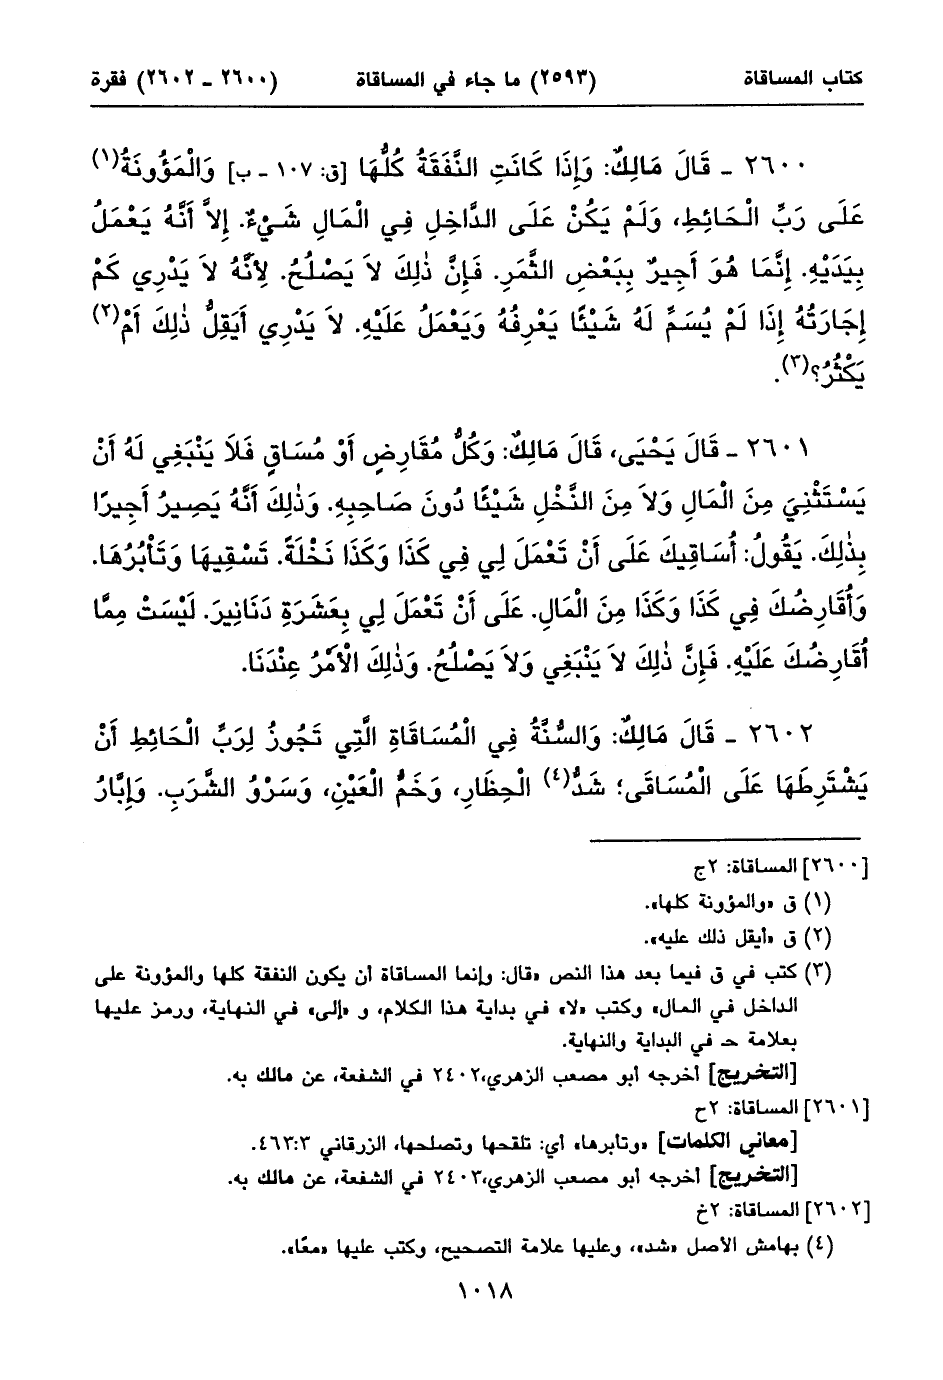 كتاب المساقاة (٢٥٩٣) ما جاء في المساقاة (٢٦٠٠ ـ ٢٦٠٢) فقرة
٢٦٠٠ ـ قَالَ مَالِكٌ: وَإِذَا كَانَتِ النَّفَقَةُ كُلُّهَا [ق: ١٠٧ ـ ب] وَالْمَؤُونَةُ(١)
عَلَى رَبِّ الْحَائِطِ، وَلَمْ يَكُنْ عَلَى الدَّاخِلِ فِي الْمَالِ شَيْءٌ. إِلاَّ أَنَّهُ يَعْمَلُ
بِيَدَيْهِ. إِنَّمَا هُوَ أَجِيرٌ بِبَعْضِ الثَّمَرِ. فَإِنَّ ذٰلِكَ لاَ يَصْلُحُ. لِأَنَّهُ لاَ يَدْرِي كَمْ
إِجَارَتُهُ إِذَا لَمْ يُسَمِّ لَهُ شَيْئًا يَعْرِفُهُ وَيَعْمَلُ عَلَيْهِ. لاَ يَدْرِي أَيَقِلُّ ذٰلِكَ أَمْ(٢)
يَكْثُرُ؟(٣).
٢٦٠١ ـ قَالَ يَحْيَى، قَالَ مَالِكٌ: وَكُلُّ مُقَارِضٍ أَوْ مُسَاقٍ فَلاَ يَنْبَغِي لَهُ أَنْ
يَسْتَثْنِيَ مِنَ الْمَالِ وَلاَ مِنَ النَّخْلِ شَيْئًا دُونَ صَاحِبِهِ. وَذٰلِكَ أَنَّهُ يَصِيرُ أَجِيرًا
بِذٰلِكَ. يَقُولُ: أُسَاقِيكَ عَلَى أَنْ تَعْمَلَ لِي فِي كَذَا وَكَذَا نَخْلَةً. تَسْقِيهَا وَتَأْبُرُهَا.
وَأُقَارِضُكَ فِي كَذَا وَكَذَا مِنَ الْمَالِ. عَلَى أَنْ تَعْمَلَ لِي بِعَشَرَةِ دَنَانِيرَ. لَيْسَتْ مِمَّا
أُقَارِضُكَ عَلَيْهِ. فَإِنَّ ذٰلِكَ لاَ يَنْبَغِي وَلاَ يَصْلُحُ. وَذٰلِكَ الْأَمْرُ عِنْدَنَا.
٢٦٠٢ ـ قَالَ مَالِكٌ: وَالسُّنَّةُ فِي الْمُسَاقَاةِ الَّتِي تَجُوزُ لِرَبِّ الْحَائِطِ أَنْ
يَشْتَرِطَهَا عَلَى الْمُسَاقَى؛ شَدُّ(٤) الْحِظَارِ، وَخَمُّ الْعَيْنِ، وَسَرْوُ الشَّرَبِ. وَإِبَّارُ
[٢٦٠٠] المساقاة: ٢ج
(١) ق «والمؤونة كلها».
(٢) ق «أيقل ذلك عليه».
(٣) كتب في ق فيما بعد هذا النص «قال: وإنما المساقاة أن يكون النفقة كلها والمؤونة على
الداخل في المال» وكتب «لا» في بداية هذا الكلام، و «إلى» في النهاية، ورمز عليها
بعلامة حـ في البداية والنهاية.
[التخريج] أخرجه أبو مصعب الزهري،٢٤٠٢ في الشفعة، عن مالك به.
[٢٦٠١] المساقاة: ٢ح
[معاني الكلمات] «وتابرها» أي: تلقحها وتصلحها، الزرقاني ٤٦٣:٣.
[التخريج] أخرجه أبو مصعب الزهري،٢٤٠٣ في الشفعة، عن مالك به.
[٢٦٠٢] المساقاة: ٢خ
(٤) بهامش الأصل «شد»، وعليها علامة التصحيح، وكتب عليها «معًا».
١٠١٨